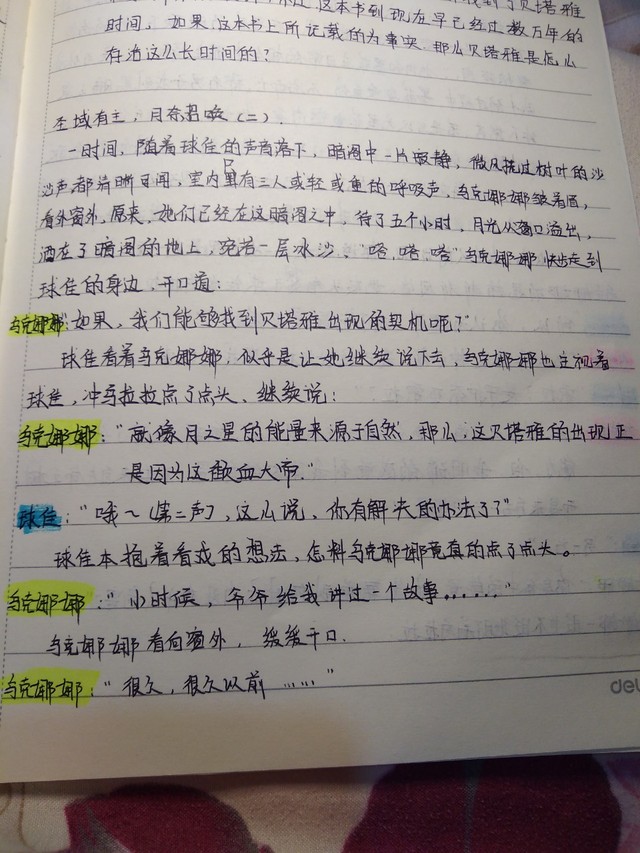 这本书到现在早已经过数万年的
时间，如果这本书上所记载的为事实，那么贝塔雅是怎么
存活这么长时间的？
圣域有主，月奈召唤（二）．
一时间，随着球佳的声音落下，暗阁中一片寂静，微风抚过树叶的沙
沙声都清晰可闻，室内只有三人或轻或重的呼吸声，乌克娜娜皱着眉，
看外窗外，原来，她们已经在这暗阁之中，待了五个小时，月光从窗口溢出，
洒在了暗阁的地上，宛若一层冰沙、“嗒，嗒，嗒”乌克娜娜快步走到
球佳的身边，开口道：
乌克娜娜：“如果，我们能够找到贝塔雅出现的契机呢？”
球佳看着乌克娜娜，似乎是让她继续说下去，乌克娜娜也注视着
球佳，冲马拉拉点了点头、继续说：
乌克娜娜：“就像月之星的能量来源于自然，那么，这贝塔雅的出现正
是因为这歃血大帝．”
球佳：“哦～（第二声），这么说，你有解决的办法了？”
球佳本抱着看戏的想法，怎料乌克娜娜竟真的点了点头。
乌克娜娜：“小时候，爷爷给我讲过一个故事……”
乌克娜娜看向窗外，缓缓开口．
乌克娜娜：“很久，很久以前……”